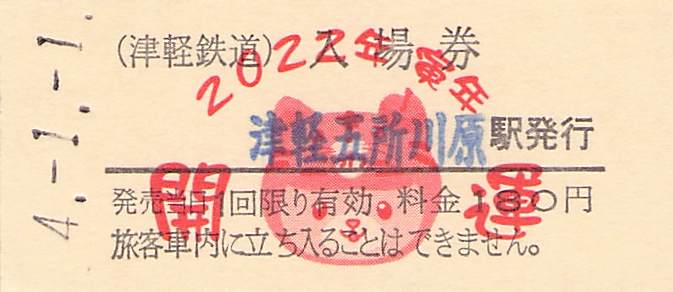 4.-1.-1.
(津軽鉄道) 入場券
2022年 寅年
津軽五所川原駅発行
開運
発売当日1回限り有効 料金180円
旅客車内に立ち入ることはできません。